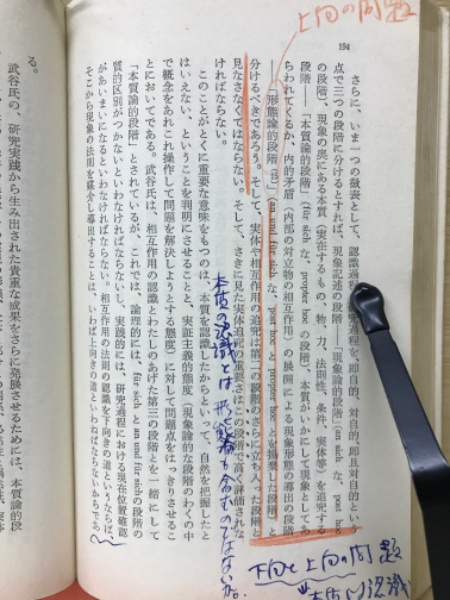 上向の問題
194
さらに、いま一つの徴表として、認識過程、研究過程を、即自的、対自的、即且対自的という
点で三つの段階に分けるとすれば、現象記述の段階――「現象論的段階」(an sich な、post hoc
の段階)、現象の奥にある本質(実在するもの、物、力、法則性、条件、実体等)を追究する
段階――「本質論的段階」(für sich な、propter hoc の段階)、本質がいかにして現象としてあ
らわれてくるか、内的矛盾(内部の対立物の相互作用)の展開による現象形態の導出の段階
――「形態論的段階」(an und für sich な、post hoc と propter hoc とを揚棄した段階)と
分けるべきであろう。そして、実体や相互作用の追究は第二の段階のさらに立ち入った段階と
見なさなくてはならない。そして、さきに見た実体追究の重要さはこの段階で高く評価されな
ければならない。
このことがとくに重要な意味をもつのは、本質を認識したからといって、自然を把握したと
はいえない、ということを判明にさせることと、実証主義的態度(現象論的な段階のわくの中
で概念をあれこれ操作して問題を解決しようとする態度)に対して問題点をはっきりさせるこ
とにおいてである。武谷氏は、相互作用の認識とわたしのあげた第三の段階とを一緒にして
「本質論的段階」とされているが、これでは、論理的には、für sich と an und für sich の段階の
質的区別がつかないといわなければならないし、実践的には、研究過程における現在位置確認
があいまいになるといわなければならない。相互作用の法則の認識を下向きの道というならば、
そこから現象の法則を媒介し導出することは、いわば上向きの道といわねばならないからであ
る。
武谷氏の、研究実践から生み出された貴重な成果をさらに発展させるためには、本質論的段
本質の認識とは、形態論も含むのではないか。
下向と上向の問題
本質の認識